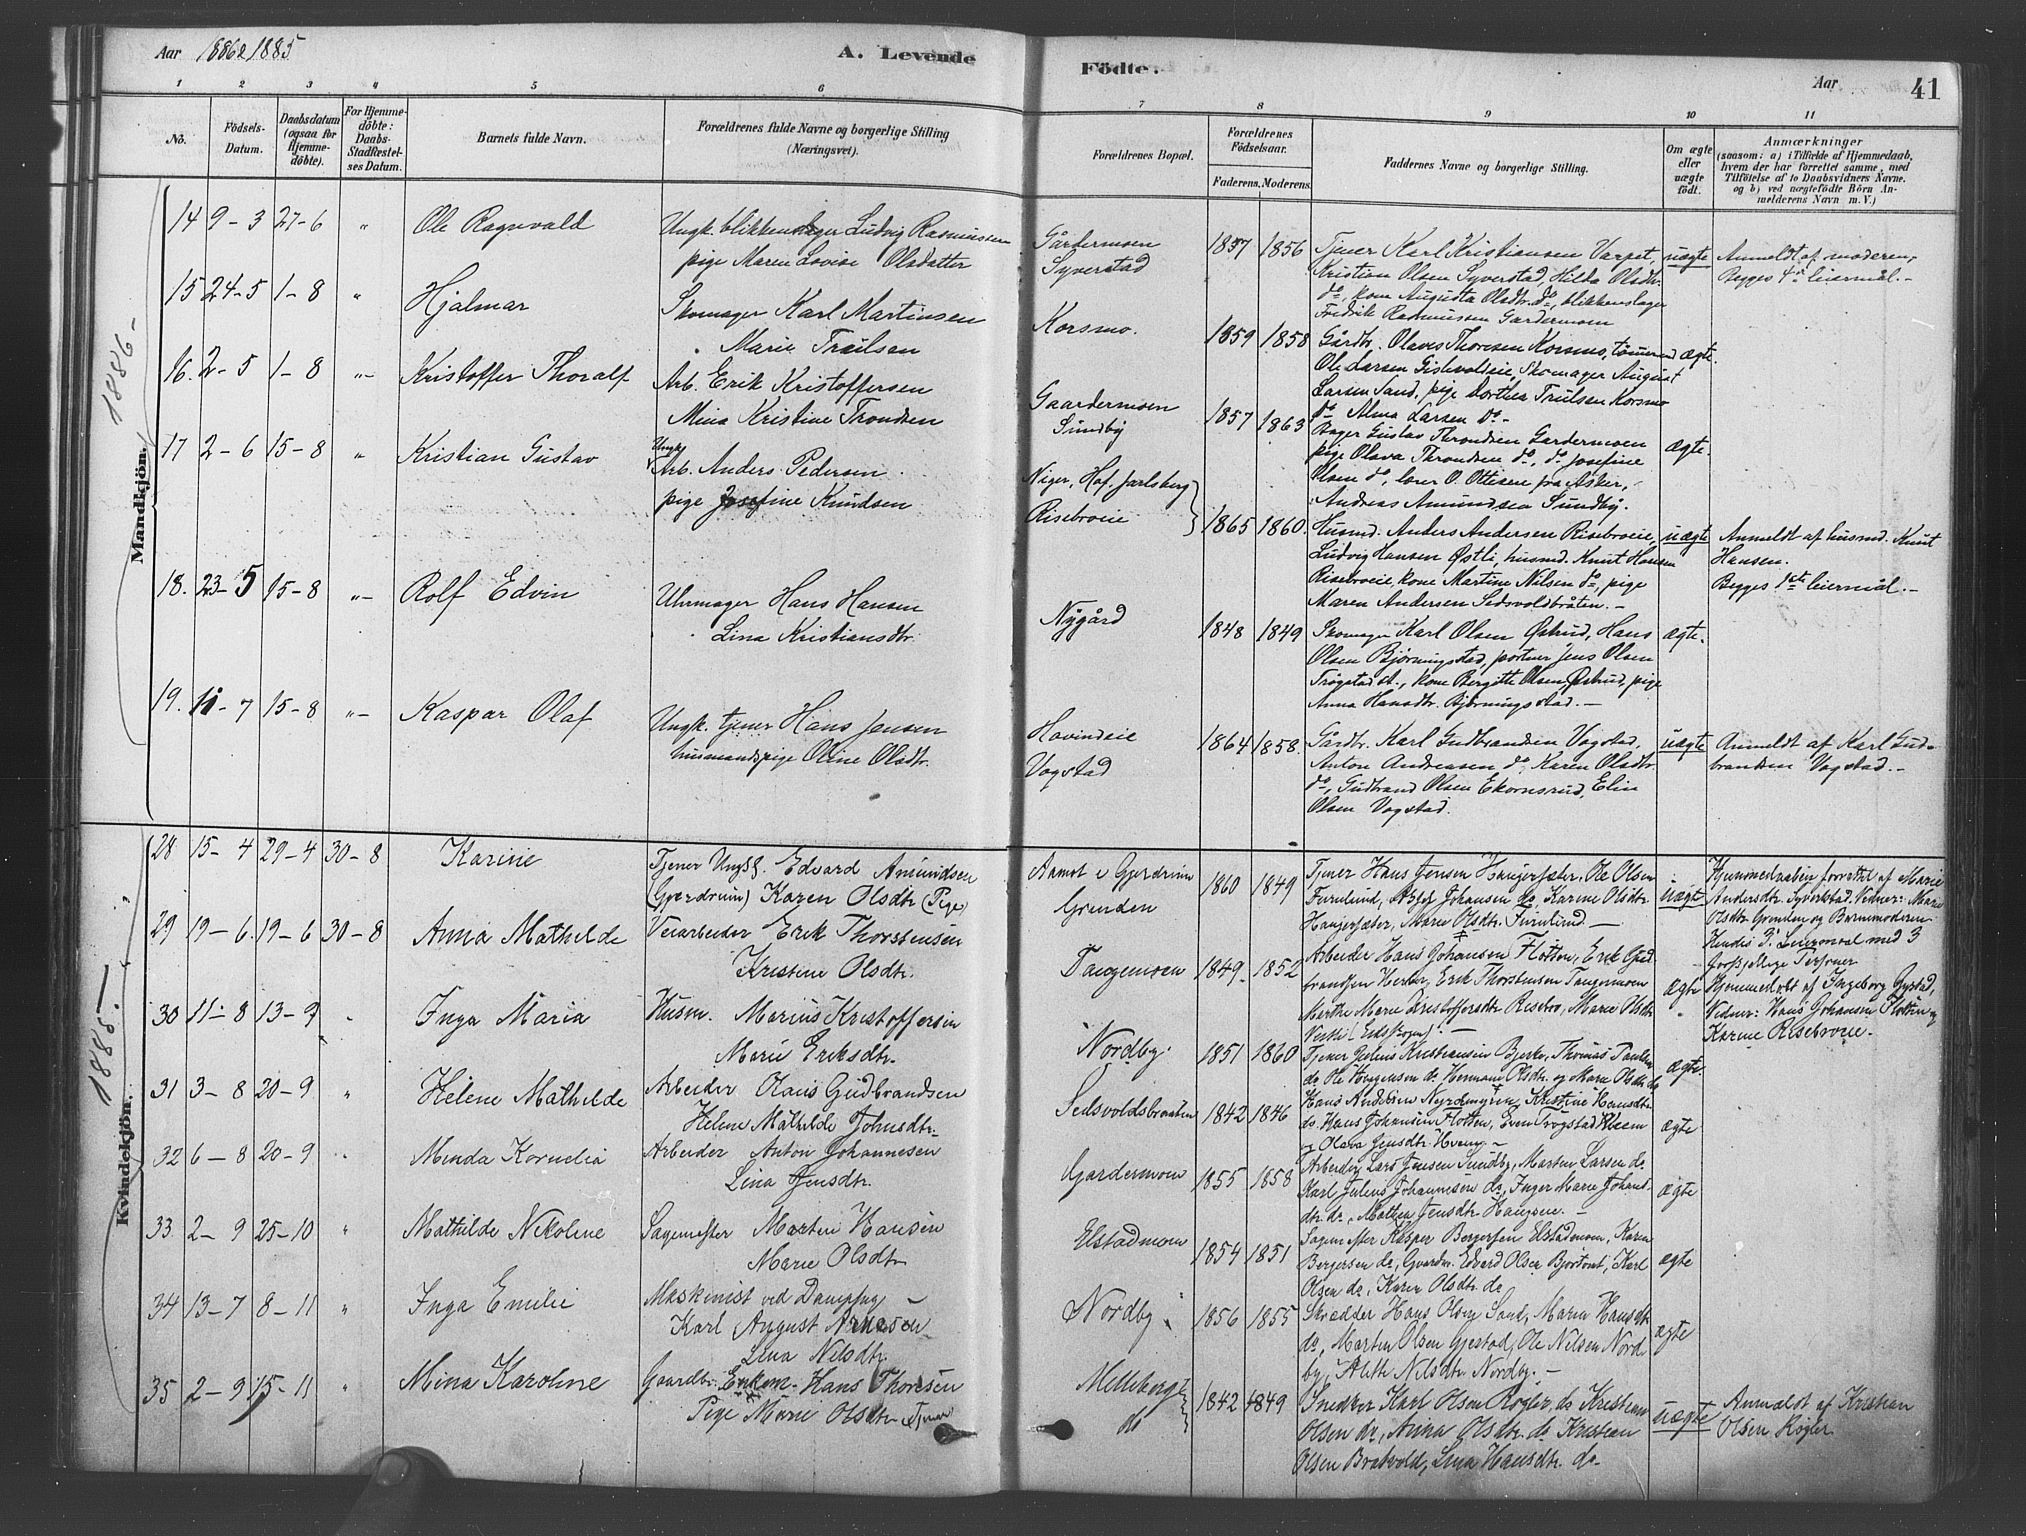 Aar 1886 & 1885
A. Levende
Födte.
Aar
41
1 2 3 4 5 6 7 8 9 10 11
No.
Födsels-Datum.
Daabsdatum (ogsaa for Hjemme-döbte).
For Hjemme-döbte: Daabs-Stadfæstelses Datum.
Barnets fulde Navn.
Forældrenes fulde Navne og borgerlige Stilling (Næringsvei).
Forældrenes Bopæl.
Forældrenes Födselsaar.
Faderens. Moderens.
Faddernes Navne og borgerlige Stilling.
Om ægte eller uægte födt.
Anmærkninger
(saasom: a) i Tilfælde af Hjemmedaab,
hvem der har forrettet samme, med
Tilföielse af to Daabsvidners Navne,
og b) ved uægtefödte Börn An-
melderens Navn m. V.)
1886-
Mandkjön.
14 9-3 27-6 " Ole Ragnvald
Ungk. blikkenslager Ludvig Rasmussen
pige Maren Lovise Olsdatter
Gårdermoen
Syverstad
1857 1856
Tjener Karl Kristiansen Varpet,
Kristian Olsen Syverstad, Hilda Olsdtr.
do, kone Augusta Olsdtr. do, blikkenslager
Fredrik Rasmussen Gardermoen
uægte
Anmeldt af moderen,
Begges 4de leiermål.-
15 24-5 1-8 " Hjalmar
Skomager Karl Martinsen
Marie Truilsen
Korsmo.
1859 1858
Gårdbr. Olaves Thoresen Korsmo, tømmermd
Ole Larsen Gislevoldeie, Skomager August
Larsen Sand, pige Dorthea Truilsen Korsmo
do Alma Larsen do-
ægte.
16. 2-5 1-8 "- Kristoffer Thoralf
Arb. Erik Kristoffersen
Mina Kristine Trondsen
Gaardermoen
Sundby
1857 1863
Bager Gustav Throndsen Gardermoen
pige Olava Throndsen do, do Josefine
Olsen do, lærer O. Ottesen fra Asker,
Andreas Amundsen Sundby.
ægte.
17 2-6 15-8 " Kristian Gustav
Ungk.
Arb. Anders Pedersen
pige Josefine Knudsen
Niger, Hof, Jarlsberg
Risebroeie
1865 1860.
Husmd. Anders Andersen Risebroeie,
Ludvig Hansen Østli, husmd. Knut Hansen
Risebroeie, kone Martine Nilsen do, pige
Maren Andersen Sedsvoldbråten.-
uægte
Anmeldt af husmd. Knut
Hansen.
Begges 1ste leiermål.-
18. 23-5 15-8 "- Rolf Edvin
Uhrmager Hans Hansen
Lina Kristiansdtr.
Nygård
1848 1849
Skomager Karl Olsen Østrud, Hans
Olsen Bjørningstad, portner Jens Olsen
Trøgstad st., kone Bergitte Olsen Østrud, pige
Anna Hansdtr. Bjørningstad.-
ægte.
19. 11-7 15-8 "- Kaspar Olaf
Ungk. tjener Hans Jensen
husmandspige Oline Olsdtr.
Hovindeie
Vogstad
1864 1858.
Gårdbr. Karl Gudbrandsen Vogstad,
Anton Andreasen do, Karen Olsdtr.
do, Gudbrand Olsen Ekornsrud, Elin
Olsen Vogstad.
uægte
Anmeldt af Karl Gud-
brandsen Vogstad.-
1885-
Kvindekjön.
28 15-4 29-4 30-8 Karine
Tjener Ungk. Edvard Amundsen
(Gjerdrum) Karen Olsdtr (Pige)
Aamot i Gjerdrum
Grenden
1860 1849
Tjener Hans Jensen Haugersæter, Ole Olsen
Furulund, Johansen do, Karine Olsdtr.
Haugersæter, Marie Olsdtr. Furulund-
uægte
Hjemmedaaben forrettet af Marie
Andersdtr. Syverstad. Vidner: Marie
Olsdtr Grenden og Barnemoderen.
Hendes 3. Leiermaal med 3
forskjellige Personer
29 19-6 19-6 30-8 Anna Mathilde
Veiarbeider Erik Thorstensen
Kristine Olsdtr.
Tangemoen
1849. 1852
Arbeider Hans Johansen Flotten, Erik Gud
brandsen Herber, Erik Thorstensen Tangemoen
Marthe Marie Kristoffersdtr Risebro, Marie Olsdtr
Vestli (Eidskogen).-
ægte
Hjemmedøbt af Ingeborg Gystad,
Vidner: Hans Johansen Flotten og
Karine Risebroeie.-
30 11-8 13-9 Inga Maria
Husm. Marius Kristoffersen
Marie Eriksdtr.
Nordby.
1851 1860
Tjener Julius Kristiansen Bjerke, Thomas Paulsen
do Ole Jørgensen do Hermana Olsdtr. og Marie Olsdtr. do
ægte.
31 3-8 20-9 " Helene Mathilde
Arbeider Olaus Gudbrandsen
Helene Mathilde Johnsdtr.
Sedsvoldsbraaten
1842 1846
Hans Andersen Nyrdmyren, Kristine Hansdtr
do. Hans Johansen Flotten, Even Trøgstad Olsen
og Olava Jensdtr. Hveng-
ægte
32 6-8 20-9 Menda Kornelia
Arbeider Anton Johannesen
Lina Jensdtr.
Gardermoen
1855 1858
Arbeider Lars Jensen Sundby, Marten Larsen do.
Karl Julius Johannesen do, Inger Marie Johans-
dtr. do, Mathea Jensdtr. Haugsene.-
ægte
33 2-9 25-10 " Mathilde Nikoline
Sagmester Martin Hansen
Marie Olsdtr.
Elstadmoen
1854 1851
Sagmester Kasper Bergersen Elstadmoen, Karen
Bergersen do, Gaardm. Edvard Olsen Bjørtomt, Karl
Olsen do, Karen Olsdtr. do
ægte
34 13-7 8-11 " Inga Emilie
Maskinist ved Dampsag-
Karl August Arnesen
Lina Nilsdtr.
Nordby
1856 1855
Skrædder Hans Olsen Sand, Maren Hansdtr
do, Marten Olsen Gjestad, Ole Nilsen Nord
by, Alette Nilsdtr. Nordby.-
ægte
35 2-9 15-11 " Mina Karoline
Gaardbr. Enkem. Hans Thoresen
Pige Marie Olsdtr. Tjener
Melleberg
do
1842 1849
Snedker Karl Olsen Røgler, do Kristian
Olsen do, Anna Olsdtr. do Kristian
Olsen Brotvold, Lina Hansdtr. do-
uægte
Anmeldt af Kristian
Olsen Røgler.